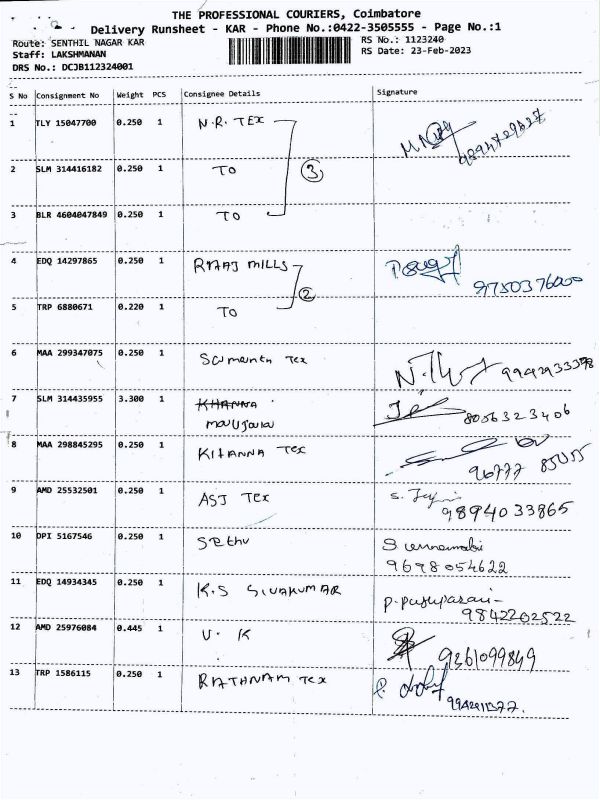 THE PROFESSIONAL COURIERS, Coimbatore
Delivery Runsheet - KAR - Phone No.:0422-3505555 - Page No.:1
Route: SENTHIL NAGAR KAR
RS No.: 1123240
Staff: LAKSHMANAN
RS Date: 23-Feb-2023
DRS No.: DCJB112324001
S No Consignment No Weight PCS Consignee Details Signature
1 TLY 15047700 0.250 1 N.R. TEX
2 SLM 314416182 0.250 1 TO 3
3 BLR 4604047849 0.250 1 TO
4 EDQ 14297865 0.250 1 RAAJ MILLS 9750376000
2
5 TRP 6880671 0.220 1 TO
6 MAA 299347075 0.250 1 Tex
7 SLM 314435955 3.300 1 KHANNA 8056323406
8 MAA 298845295 0.250 1 KHANNA Tex 96777 85055
9 AMD 25532501 0.250 1 ASJ TEX 9894033865
10 DPI 5167546 0.250 1 Sethu 9698054622
11 EDQ 14934345 0.250 1 K.S SIVAKUMAR 9842202522
12 AMD 25976084 0.445 1 V. K 9361099849
13 TRP 1586115 0.250 1 RATHNAM Tex